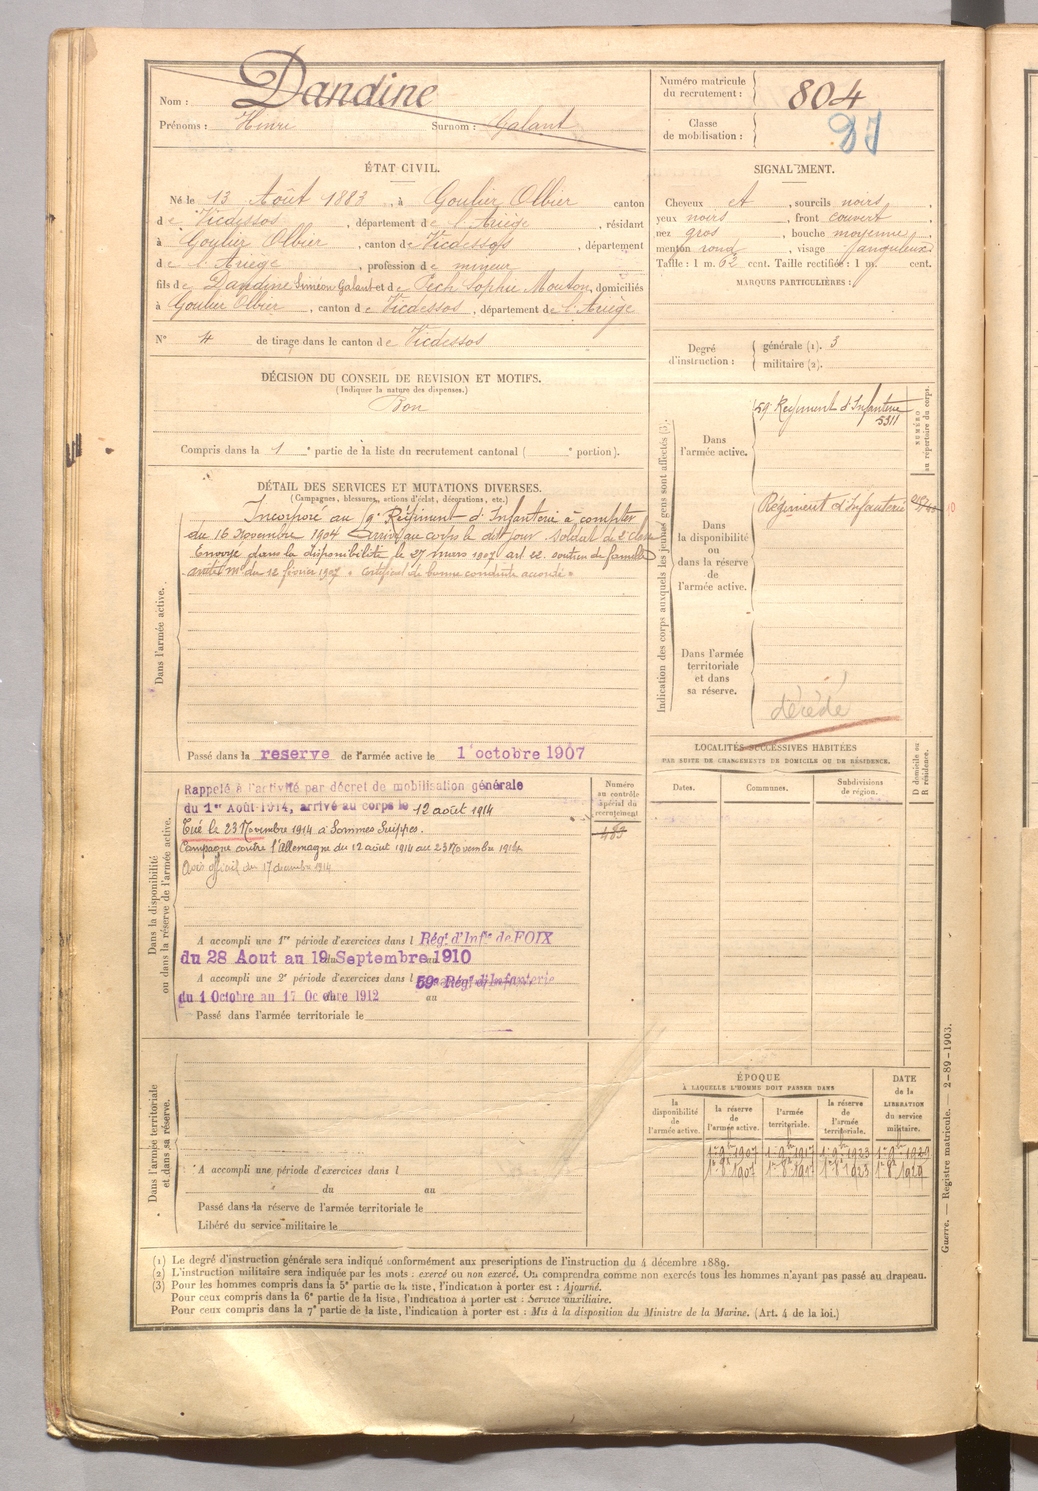 Nom : Dandine
Prénoms : Henri Surnom : Galant
Numéro matricule du recrutement : 804
Classe de mobilisation :
ÉTAT CIVIL.
Né le 13 Août 1883, à Goulier Olbier canton
de Vicdessos, département de l'Ariège, résidant
à Goulier Olbier, canton de Vicdessos, département
de l'Ariège, profession de mineur
fils de Dandine Siméon Galant et de Pech Sophie Mouton, domiciliés
à Goulier Olbier, canton de Vicdessos, département de l'Ariège
N° 4 de tirage dans le canton de Vicdessos
SIGNALEMENT.
Cheveux et, sourcils noirs,
yeux noirs, front couvert,
nez gros, bouche moyenne,
menton rond, visage
Taille : 1 m. 62 cent. Taille rectifiée : 1 m. cent.
MARQUES PARTICULIÈRES :
Degré d'instruction : générale (1). 3
militaire (2).
DÉCISION DU CONSEIL DE REVISION ET MOTIFS.
(Indiquer la nature des dispenses.)
Bon
Compris dans la 1e partie de la liste du recrutement cantonal ( e portion).
DÉTAIL DES SERVICES ET MUTATIONS DIVERSES.
(Campagnes, blessures, actions d'éclat, décorations, etc.)
Dans l'armée active.
Incorporé au 9e Régiment d'Infanterie à compter
du 16 Novembre 1904 Arrivé au corps le dit jour Soldat de 2e classe
Envoyé dans la disponibilité le 27 mars 1907 art 22. soutien de famille
arrêté Mel du 12 février 1907 « Certificat de bonne conduite accordé »
Passé dans la reserve de l'armée active le 1 octobre 1907
Indication des corps auxquels les jeunes gens sont affectés (3).
NUMÉRO au répertoire du corps.
Dans l'armée active.
59e Régiment d'Infanterie
5311
Dans la disponibilité ou dans la réserve de l'armée active.
Régiment d'Infanterie
Dans l'armée territoriale et dans sa réserve.
décédé
LOCALITÉS SUCCESSIVES HABITÉES
PAR SUITE DE CHANGEMENTS DE DOMICILE OU DE RÉSIDENCE.
Dates.
Communes.
Subdivisions de région.
D domicile ou R résidence.
Dans la disponibilité ou dans la réserve de l'armée active.
Numéro au contrôle spécial du recrutement
483
Rappelé à l'activité par décret de mobilisation générale
du 1er Août 1914, arrivé au corps le 12 août 1914
Tué le 23 Novembre 1914 à Sommes Suippes.
Campagne contre l'Allemagne du 12 août 1914 au 23 Novembre 1914
Avis officiel du 17 décembre 1914
A accompli une 1re période d'exercices dans l Régt d'Infie de FOIX
du 28 Aout au 19 Septembre 1910
A accompli une 2e période d'exercices dans l 59e Régt d'Infanterie
du 1 Octobre au 17 Octobre 1912 au
Passé dans l'armée territoriale le
Dans l'armée territoriale et dans sa réserve.
A accompli une période d'exercices dans l
du au
Passé dans la réserve de l'armée territoriale le
Libéré du service militaire le
ÉPOQUE
À LAQUELLE L'HOMME DOIT PASSER DANS
la disponibilité de l'armée active.
la réserve de l'armée active.
l'armée territoriale.
la réserve de l'armée territoriale.
DATE de la LIBÉRATION du service militaire.
1er 9bre 1907 1er 9bre 1917 1er 9bre 1923 1er 9bre 1929
1er 8bre 1907 1er 8bre 1917 1er 8bre 1923 1er 8bre 1929
Guerre. — Registre matricule. — 2-89-1903.
(1) Le degré d'instruction générale sera indiqué conformément aux prescriptions de l'instruction du 4 décembre 1889.
(2) L'instruction militaire sera indiquée par les mots : exercé ou non exercé. On comprendra comme non exercés tous les hommes n'ayant pas passé au drapeau.
(3) Pour les hommes compris dans la 5e partie de la liste, l'indication à porter est : Ajourné.
Pour ceux compris dans la 6e partie de la liste, l'indication à porter est : Service auxiliaire.
Pour ceux compris dans la 7e partie de la liste, l'indication à porter est : Mis à la disposition du Ministre de la Marine. (Art. 4 de la loi.)